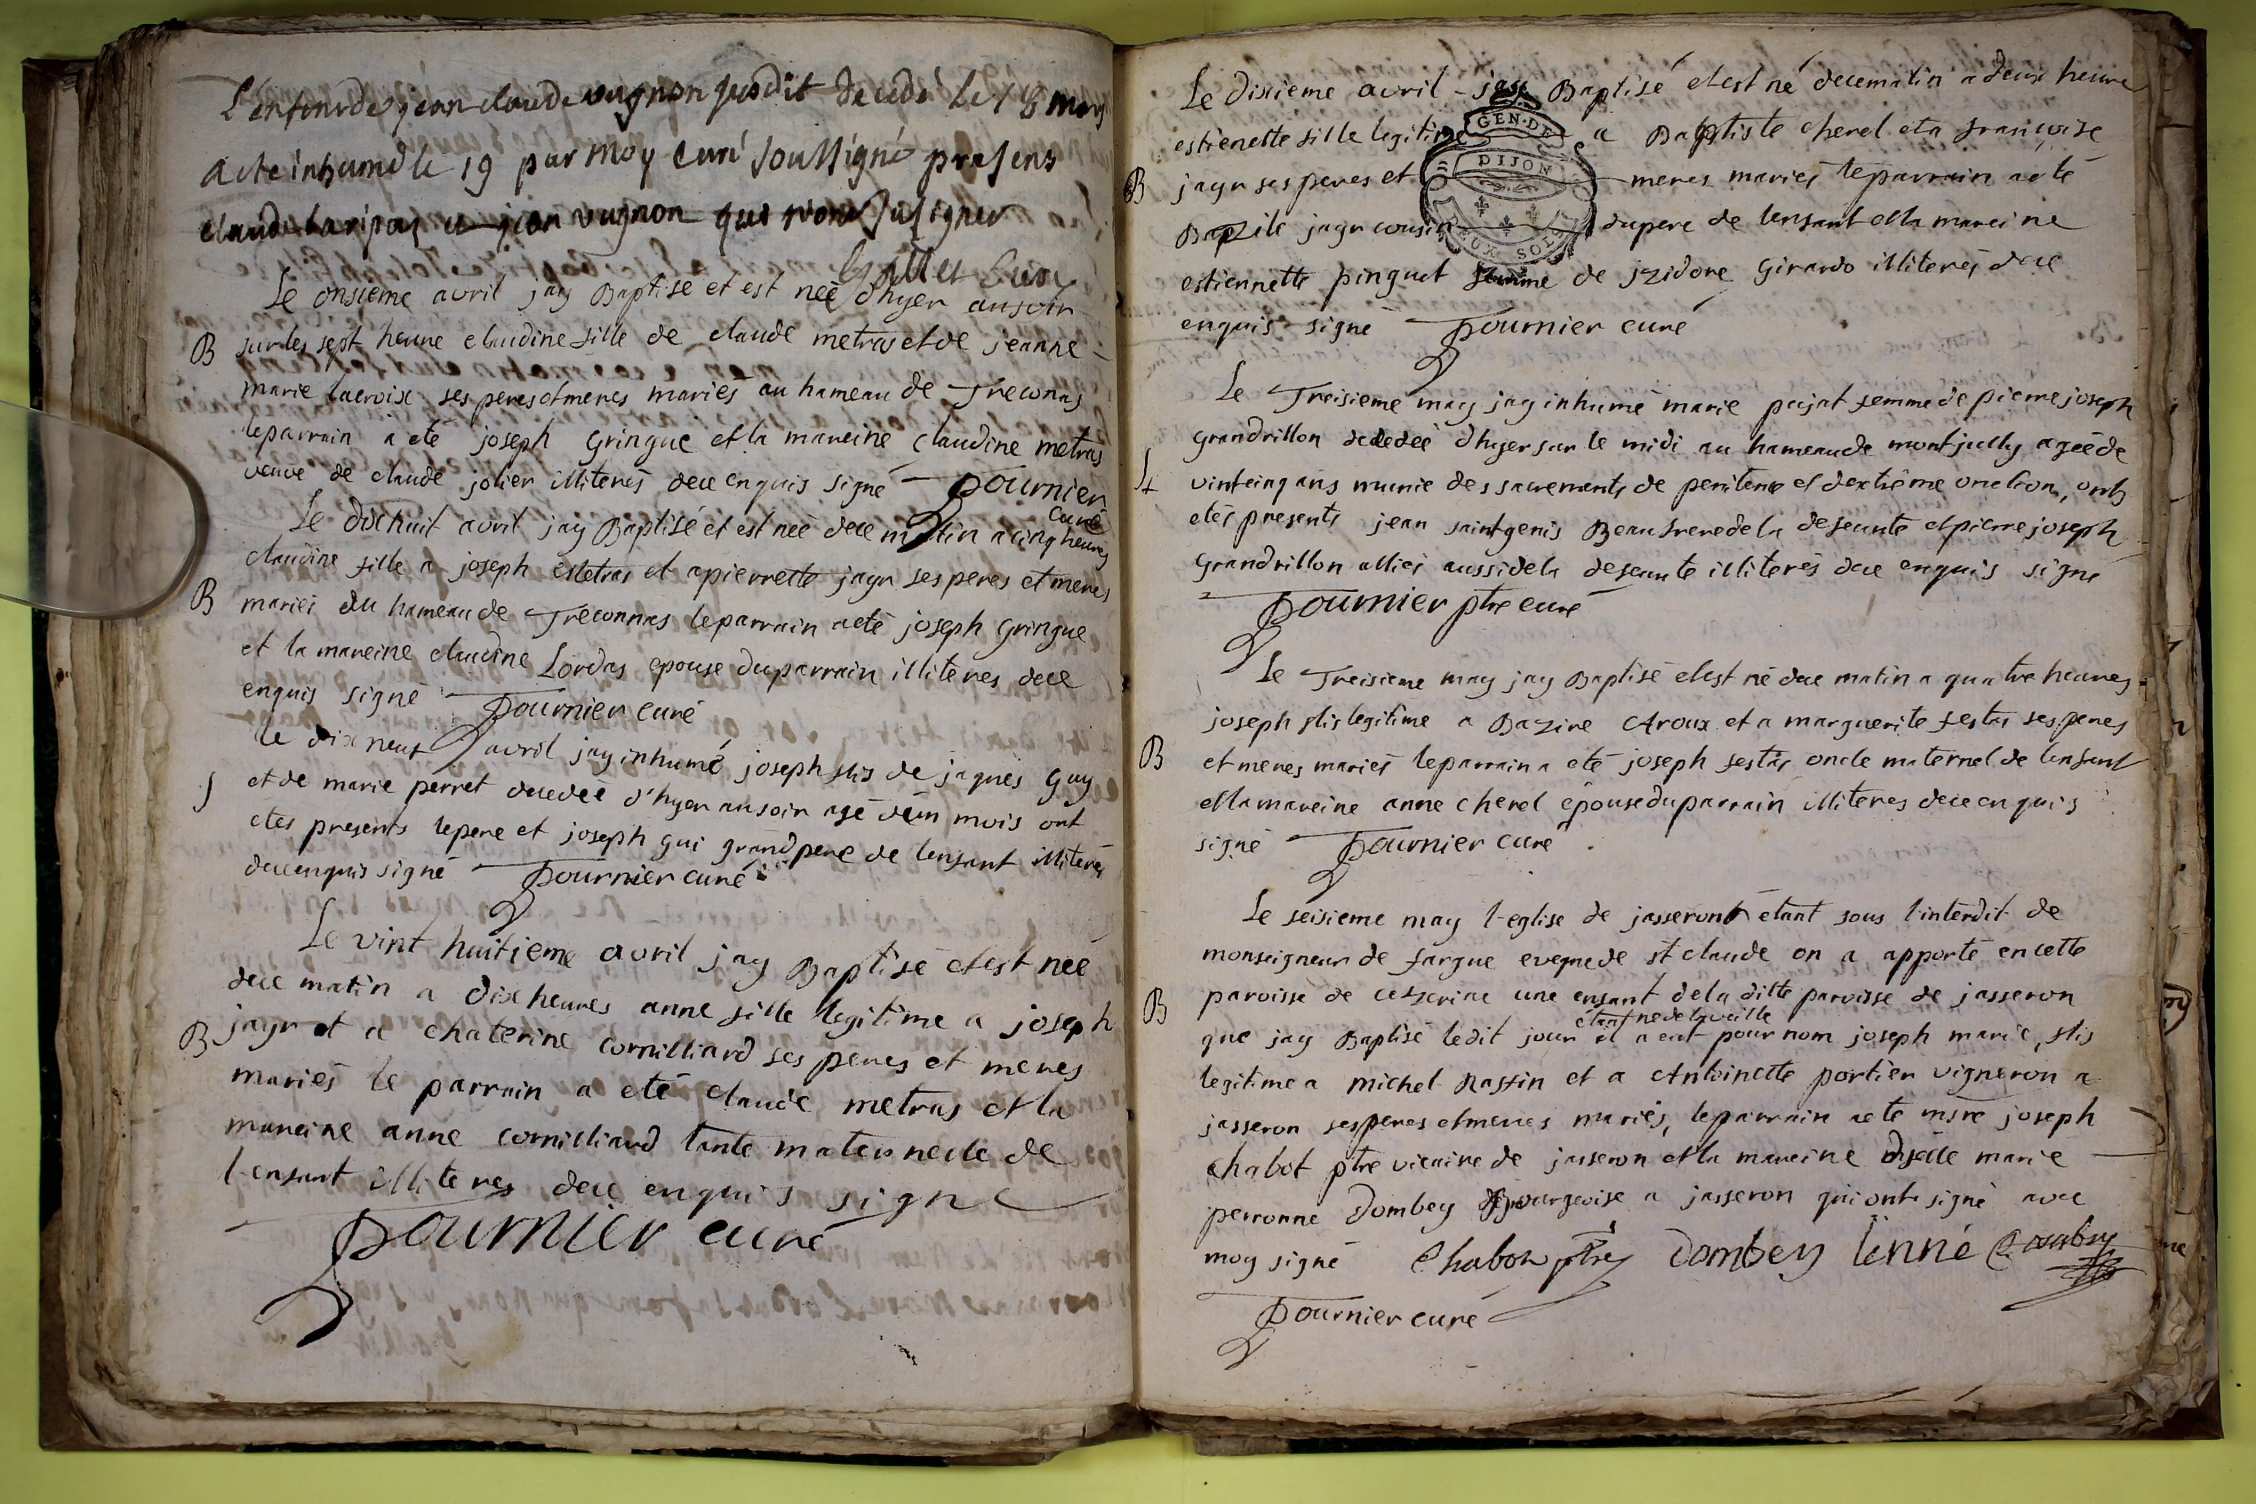 L'enfent de jean claude vugnon susdit decede le 18 mars
a ete inhumé le 19 par moy curé soussigné presens
claude laripas et jean vugnon qui n'ont su signer
Curé
Le onsieme avril jay Baptisé et est neé d'hyer au soir
B sur les sept heure claudine fille de claude metras et de jeanne
marie lacroix ses peres et meres mariés au hameau de Treconas
le parrain a eté joseph Gringue et la mareine claudine metras
veuve de claude jolier illiterés de ce enquis signé Fournier
curé
Le dixhuit avril jay Baptisé et est neé de ce matin a cinq heures
claudine fille a joseph Metras et a pierrette jayr ses peres et meres
B mariés du hameau de Treconnas le parrain a eté joseph Gringue
et la mareine claudine Lordas epouse du parrain illiteres de ce
enquis signé Fournier curé
le dix neuf avril jay inhumé joseph fils de jaques Guy
S et de marie perret decedeé d'hyer au soir agé d'un mois ont
etes presents le pere et joseph gui grandpere de lenfant illiterés
de ce enquis signé Fournier curé
Le vint huitieme avril jay Baptisé et est neé
de ce matin a dix heures anne fille legitime a joseph
B jayr et a chaterine cornilliard ses peres et meres
mariés le parrain a eté claude metras et la
mareine anne cornilliard tante maternelle de
l'enfant illiteres de ce enquis signé
Fournier curé
Le dixieme avril jay Baptisé et est né de ce matin a deux heure
estienette fille legitime a Baptiste cherel et a francoise
GEN·DE
DIJON
DEUX SOLS
B jayr ses peres et meres mariés le parrain a eté
Bazile jayr cousin du pere de lenfant et la mareine
estiennette pinguet femme de jzidore Girardo illiterés de ce
enquis signé Fournier curé
Le Treisieme may jay inhumé marie pujat femme de pierre joseph
Grandrillon decedeé d'hyer sur le midi au hameau de montjully ageé de
vintcinq ans munie des sacrements de penitence et d'extrême onction, onts
etés presents jean saintgenis Beaufrere de la defeunte et pierre joseph
Grandrillon alliés aussi de la defeunte illiterés de ce enquis signé
Fournier ptre curé
Le Treisieme may jay Baptisé et est né de ce matin a quatre heures
joseph fils legitime a Bazire Aroux et a marguerite festas ses peres
B et meres mariés le parrain a eté joseph festas oncle maternel de lenfant
et la mareine anne cherel épouse du parrain illiteres de ce enquis
signé Fournier curé
Le seisieme may l'eglise de jasseront étant sous l'interdit de
monseigneur de fargue eveque de st claude on a apporté en cette
B paroisse de ceszeriac une enfant de la ditte paroisse de jasseron
étant né de la veille
que jay Baptisé ledit jour et a eut pour nom joseph marie, fils
legitime a michel Raffin et a Antoinette portier vigneron a
jasseron ses peres et meres mariés, le parrain a eté msre joseph
chabot ptre vicaire de jasseron et la mareine dselle marie
perronne Dombey Bourgeoise a jasseron qui ont signé avec
moy signé Chabot ptre Dombey lenné Dombey
Fournier curé